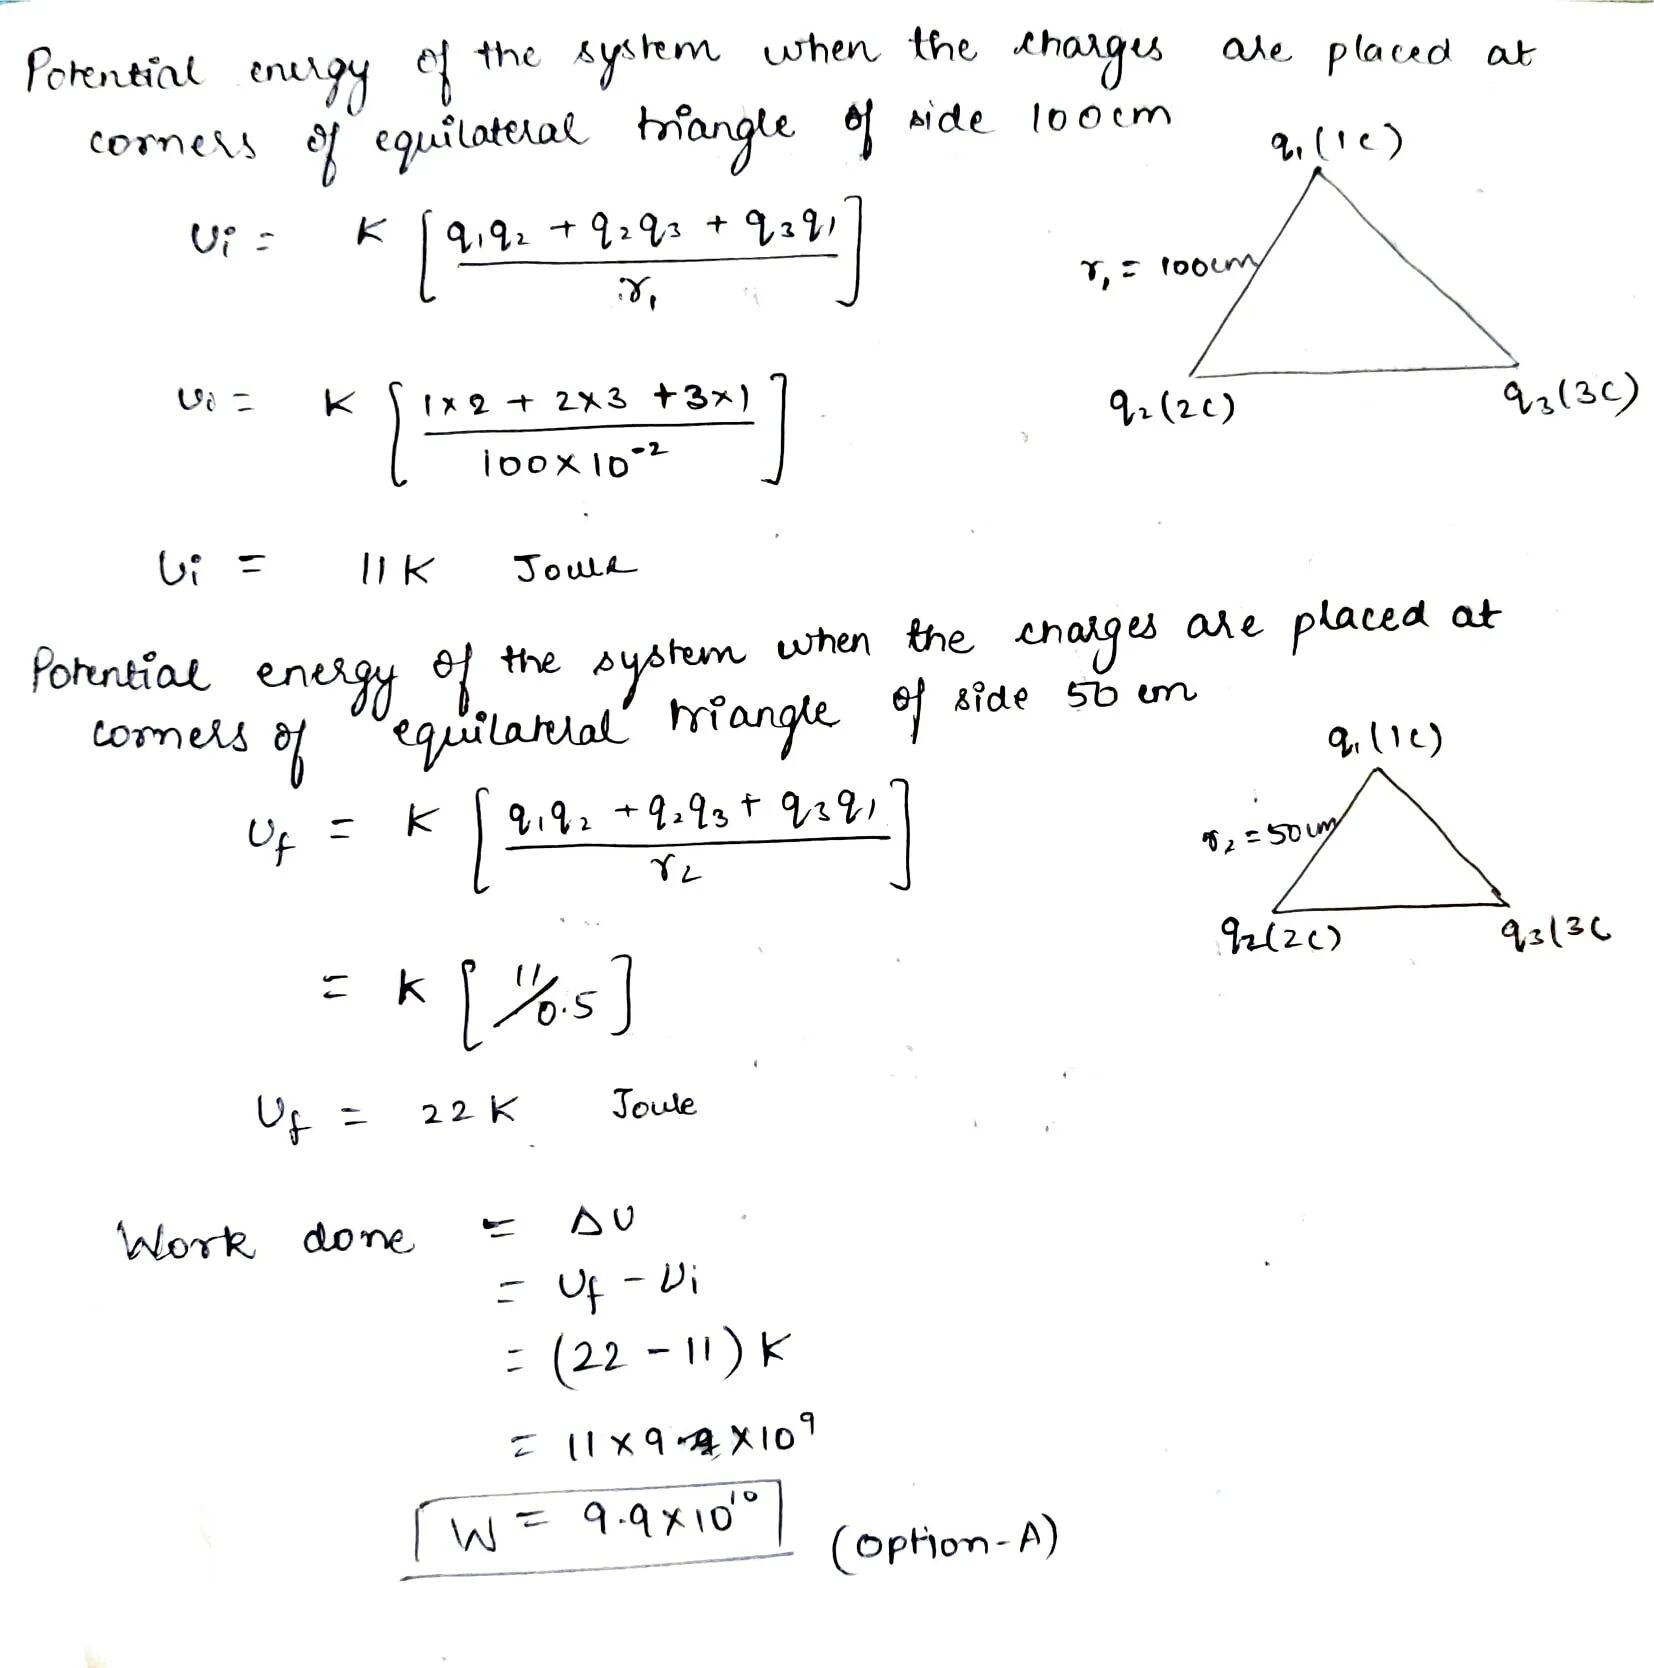 Potential energy of the system when the charges are placed at
corners of equilateral triangle of side 100cm
q₁(1C)
Ui = K [q₁q₂ + q₂q₃ + q₃q₁ / r₁]
r₁ = 100cm
q₂(2C) q₃(3C)
Ui = K [1×2 + 2×3 + 3×1 / 100×10⁻²]
Ui = 11K Joule
Potential energy of the system when the charges are placed at
corners of equilateral triangle of side 50 cm
q₁(1C)
Uf = K [q₁q₂ + q₂q₃ + q₃q₁ / r₂]
r₂ = 50cm
q₂(2C) q₃(3C
= K [11/0.5]
Uf = 22K Joule
Work done = ΔU
= Uf - Ui
= (22 - 11) K
= 11×9×10⁹
W = 9.9×10¹⁰ (option-A)